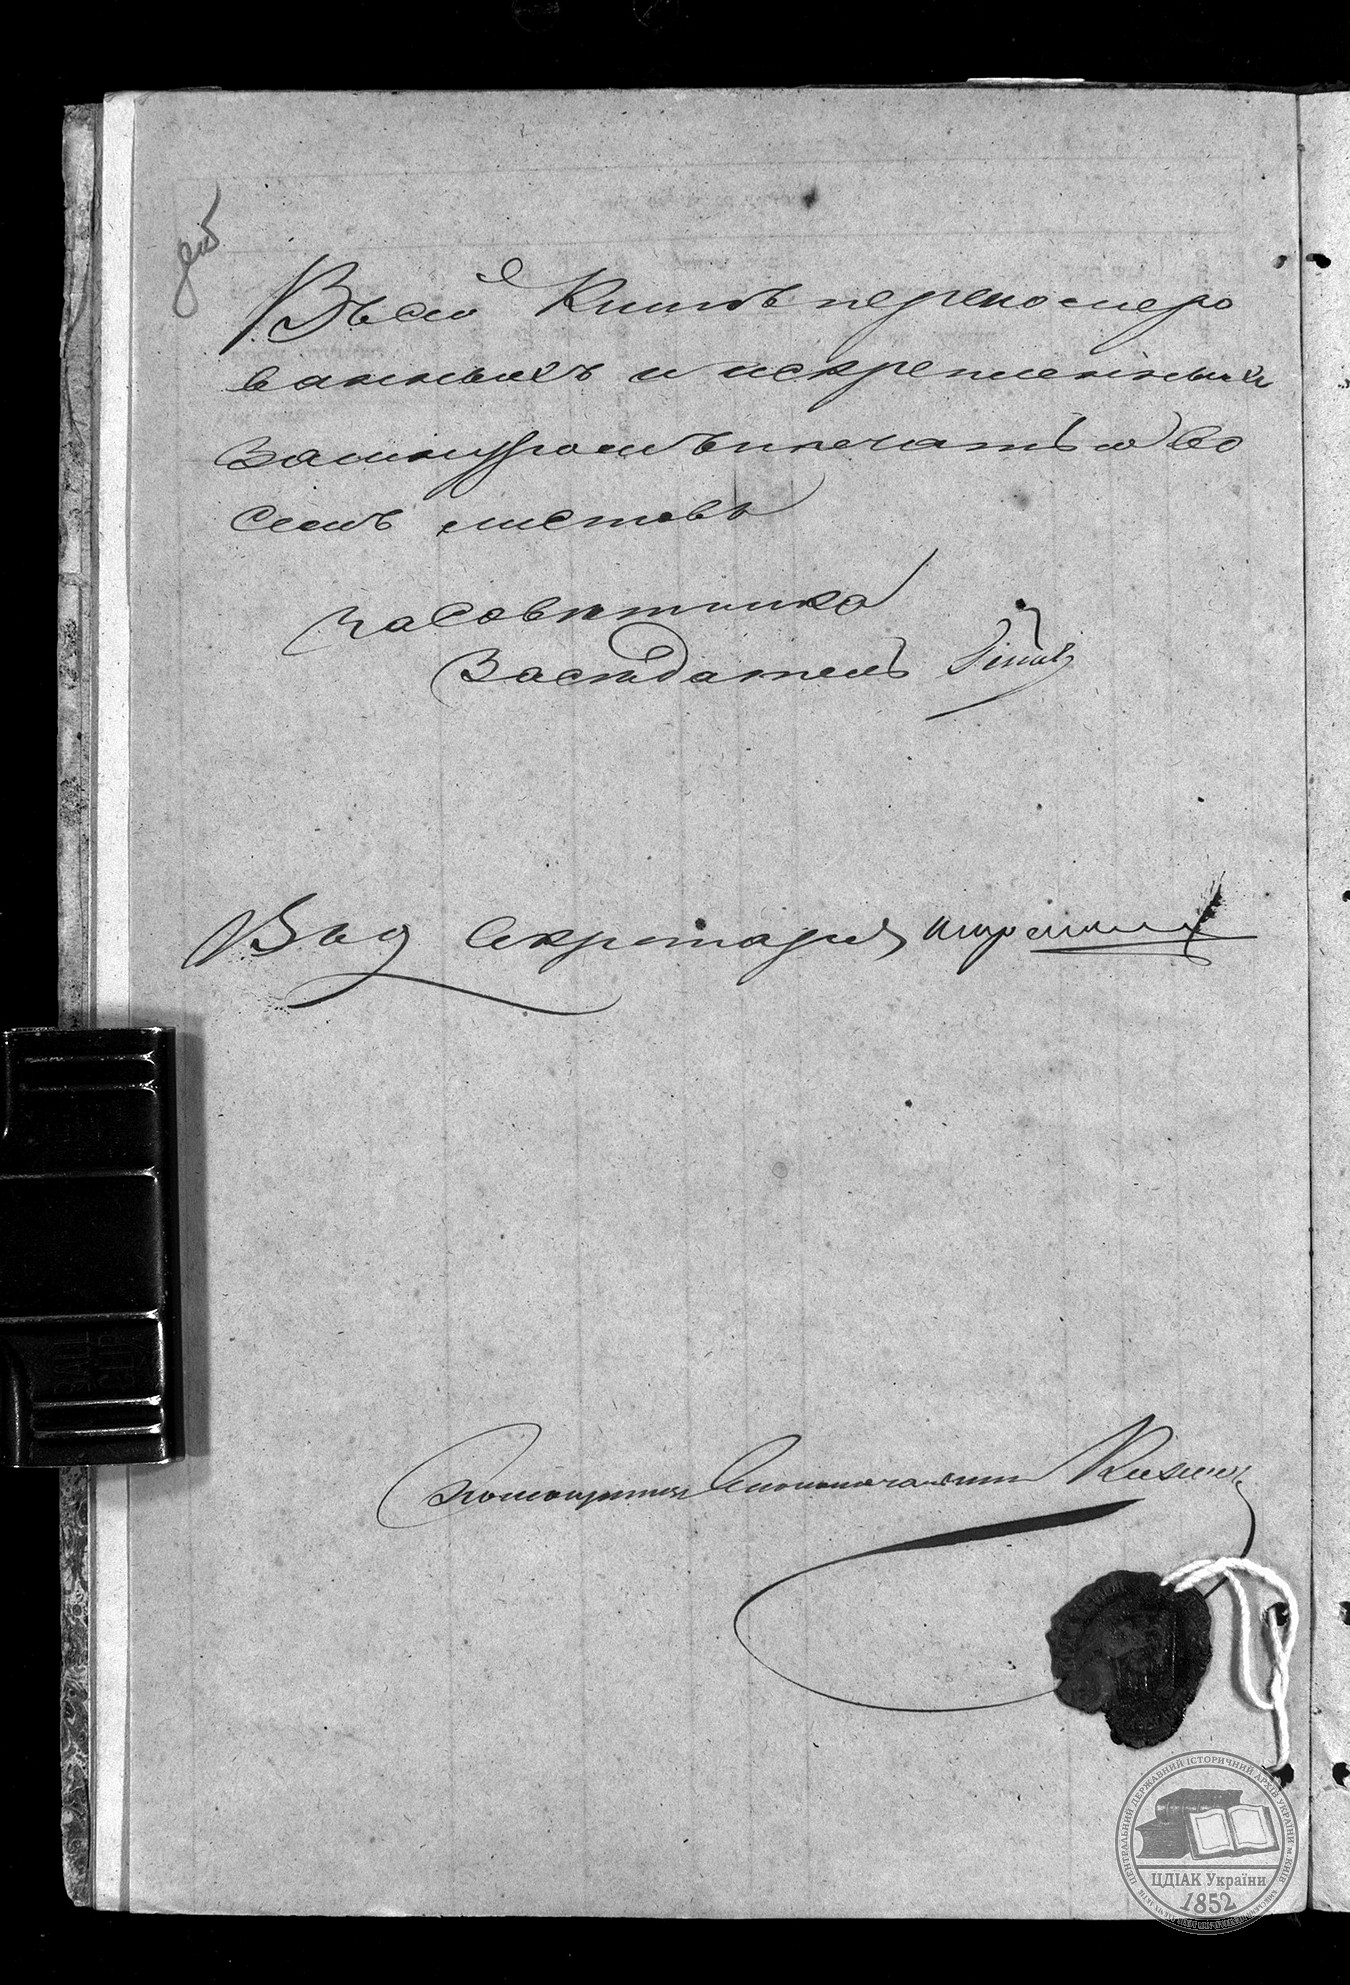 Въ сей Книгѣ перенумеро
ванныхъ и искрепленныхъ
за шнуромъ и печатью во
семь листовъ
За Совѣтника
Засѣдатель
Вѣд Секретаря
Помощникъ Столоначальника
ЦЕНТРАЛЬНИЙ ДЕРЖАВНИЙ ІСТОРИЧНИЙ АРХІВ УКРАЇНИ м. КИЇВ
ЦДІАК України
1852